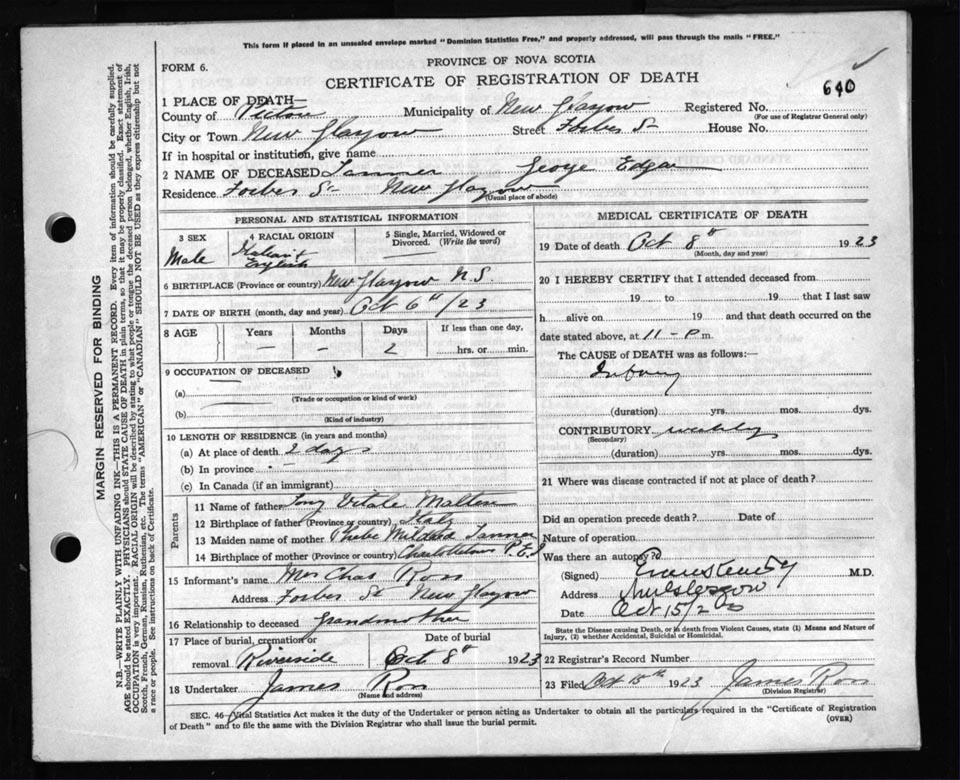 This form if placed in an unsealed envelope marked "Dominion Statistics Free," and properly addressed, will pass through the mails "FREE."
PROVINCE OF NOVA SCOTIA
FORM 6.
CERTIFICATE OF REGISTRATION OF DEATH
640
1 PLACE OF DEATH—
County of Pictou Municipality of New Glasgow Registered No.
(For use of Registrar General only)
City or Town New Glasgow Street Forbes St House No.
If in hospital or institution, give name
2 NAME OF DECEASED Tanner George Edgar
Residence Forbes St New Glasgow
(Usual place of abode)
PERSONAL AND STATISTICAL INFORMATION
3 SEX 4 RACIAL ORIGIN 5 Single, Married, Widowed or Divorced. (Write the word)
Male Italian & English
6 BIRTHPLACE (Province or country) New Glasgow N.S.
7 DATE OF BIRTH (month, day and year) Oct 6th /23
8 AGE Years Months Days If less than one day,
— — 2 hrs. or min.
9 OCCUPATION OF DECEASED
(a)
(Trade or occupation or kind of work)
(b)
(Kind of industry)
10 LENGTH OF RESIDENCE (in years and months)
(a) At place of death 2 days
(b) In province
(c) In Canada (if an immigrant)
Parents
11 Name of father Tony Vitale
12 Birthplace of father (Province or country) Italy
13 Maiden name of mother Phebe Mildred Tanner
14 Birthplace of mother (Province or country) Charlottetown P.E.I
15 Informant's name Mrs Chas Ross
Address Forbes St New Glasgow
16 Relationship to deceased Grandmother
17 Place of burial, cremation or removal Riverside Date of burial Oct 8th 1923
18 Undertaker James Ross
(Name and address)
MEDICAL CERTIFICATE OF DEATH
19 Date of death Oct 8th 1923
(Month, day and year)
20 I HEREBY CERTIFY that I attended deceased from
19 to 19 that I last saw
h alive on 19 and that death occurred on the
date stated above, at 11 - P m.
The CAUSE of DEATH was as follows:—
(duration) yrs. mos. dys.
CONTRIBUTORY
(Secondary)
(duration) yrs. mos. dys.
21 Where was disease contracted if not at place of death?
Did an operation precede death? Date of
Nature of operation
Was there an autopsy?
(Signed) M.D.
Address New Glasgow
Date Oct 15/23
State the Disease causing Death, or in death from Violent Causes, state (1) Means and Nature of
Injury, (2) whether Accidental, Suicidal or Homicidal.
22 Registrar's Record Number
23 Filed Oct 15th 1923 James Ross
(Division Registrar)
SEC. 46—Vital Statistics Act makes it the duty of the Undertaker or person acting as Undertaker to obtain all the particulars required in the "Certificate of Registration
of Death" and to file the same with the Division Registrar who shall issue the burial permit.
(OVER)
MARGIN RESERVED FOR BINDING
N.B.—WRITE PLAINLY WITH UNFADING INK—THIS IS A PERMANENT RECORD. Every item of information should be carefully supplied.
AGE should be stated EXACTLY. PHYSICIANS should STATE CAUSE OF DEATH in plain terms, so that it may be properly classified. Exact statement of
OCCUPATION is very important. RACIAL ORIGIN will be described by stating to what people or tongue the deceased person belonged, whether English, Irish,
Scotch, French, German, Russian, Ruthenian, etc. The terms "AMERICAN" or "CANADIAN" SHOULD NOT BE USED as they express citizenship but not
a race or people. See instructions on back of Certificate.